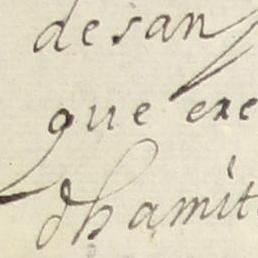 desan
que exe
dhamit